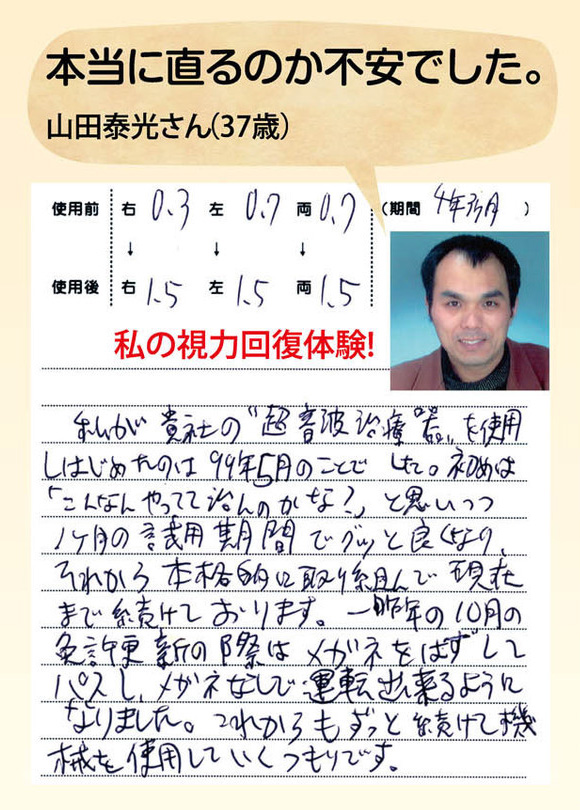 本当に直るのか不安でした。
山田泰光さん(37歳)
使用前 右 0.3 左 0.7 両 0.7 (期間 4年3ヶ月 )
↓ ↓ ↓
使用後 右 1.5 左 1.5 両 1.5
私の視力回復体験!
私が貴社の"超音波治療器"を使用
しはじめたのは99年5月のことでした。初めは
「こんなんやってて治んのかな?」と思いつつ
1ヶ月の試用期間でグッと良くなり、
それから本格的に取り組んで現在
まで続けております。一昨年の10月の
免許更新の際はメガネをはずして
パスし、メガネなしで運転出来るように
なりました。これからもずっと続けて機
械を使用していくつもりです。